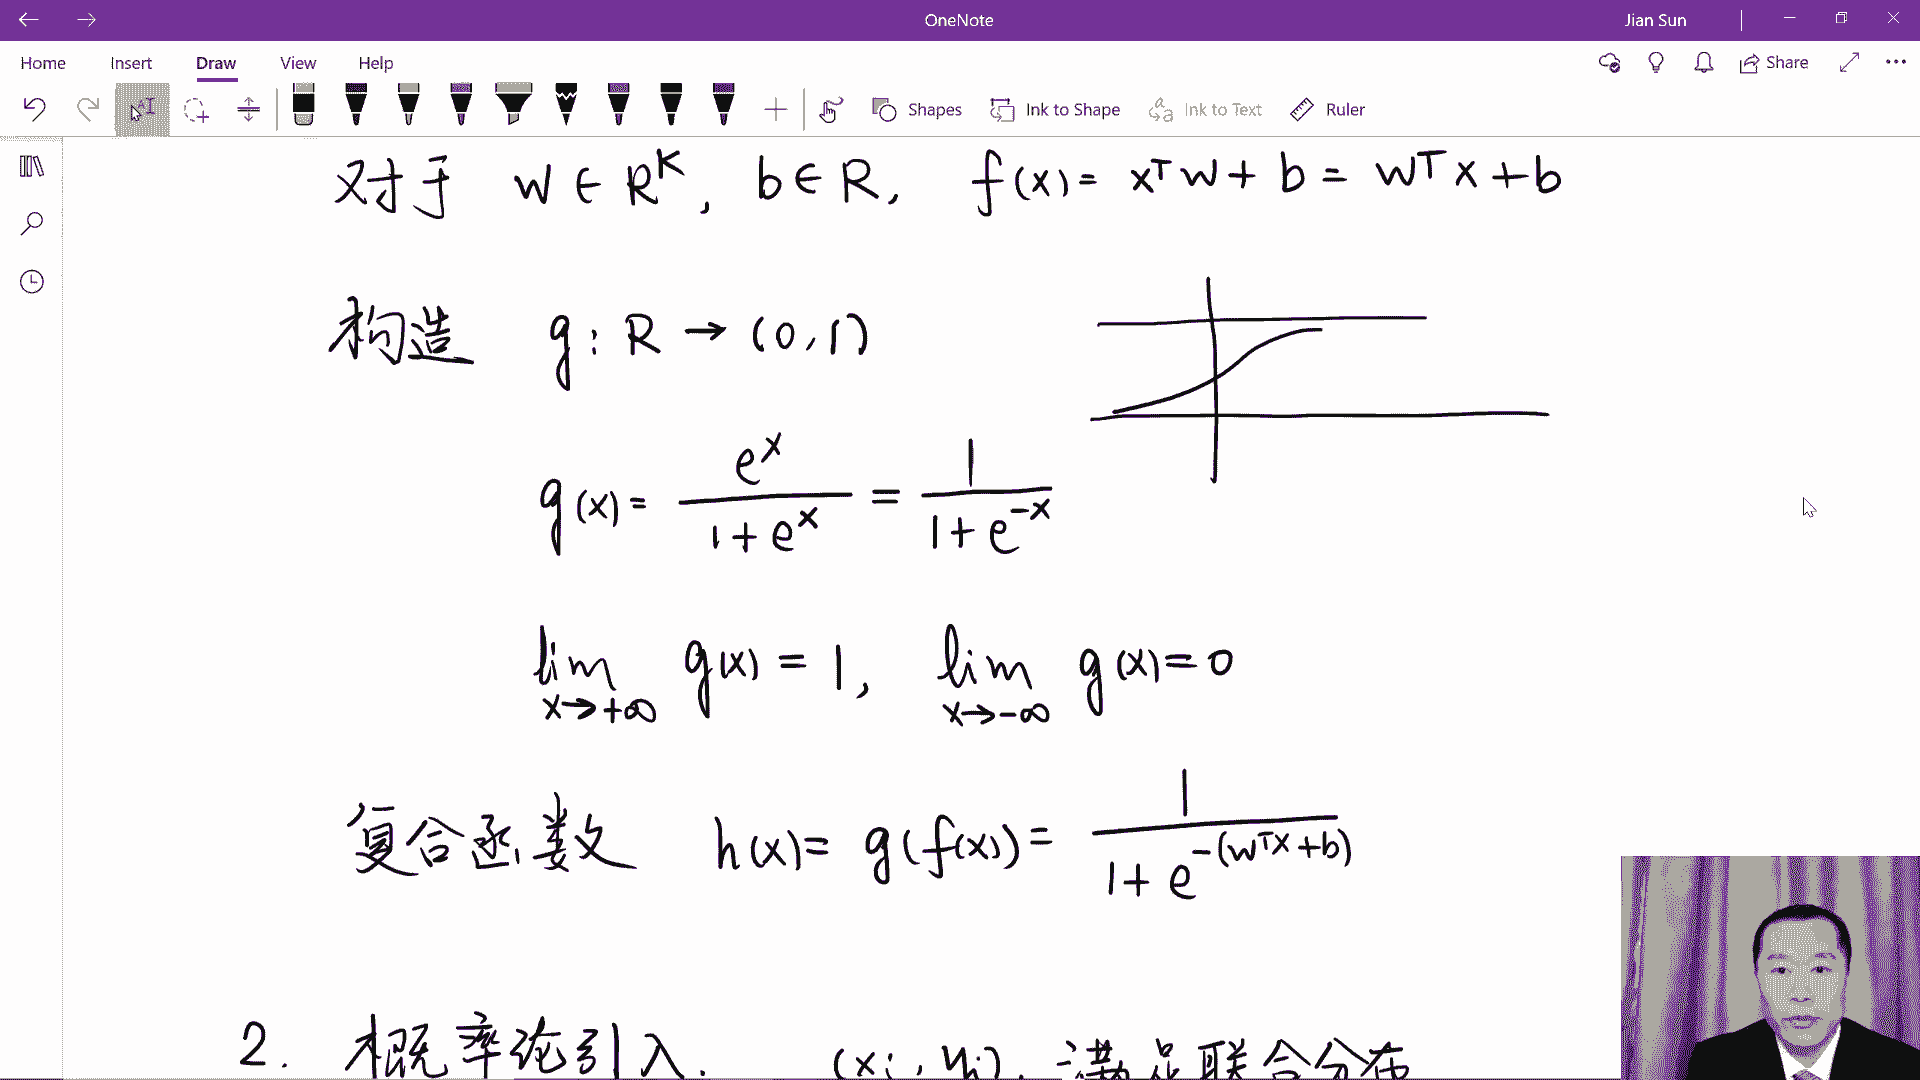 OneNote
Jian Sun
Home Insert Draw View Help
Share
Shapes Ink to Shape Ink to Text Ruler
对于 w ∈ R^K, b ∈ R, f(x) = x^T w + b = w^T x + b
构造 g: R → (0,1)
g(x) = e^x / (1 + e^x) = 1 / (1 + e^{-x})
lim_{x→+∞} g(x) = 1, lim_{x→-∞} g(x) = 0
复合函数 h(x) = g(f(x)) = 1 / (1 + e^{-(w^T x + b)})
2. 概率论引入. (x_i, y_i), 满足联合分布